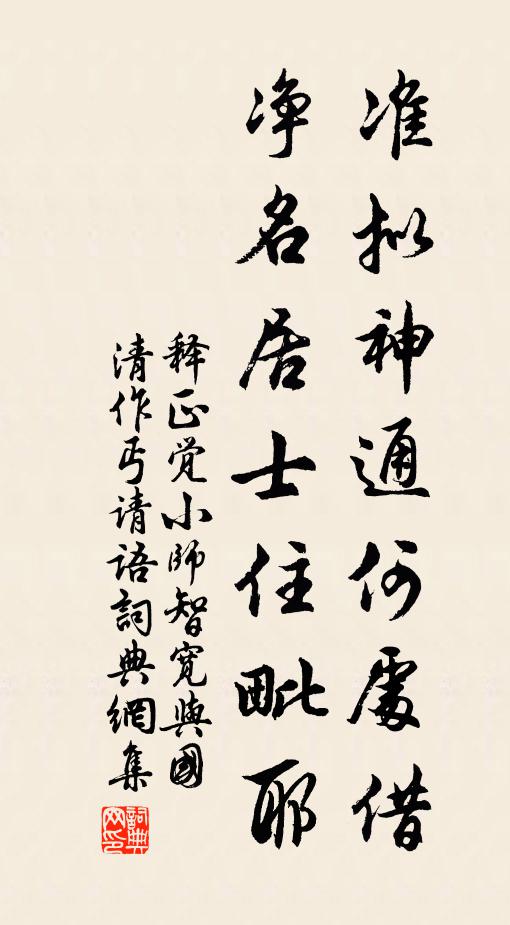 准拟神通何處借
净名居士住毗耶
释正觉小師智宽與國
清作丐请语詞典網集
詞典网印